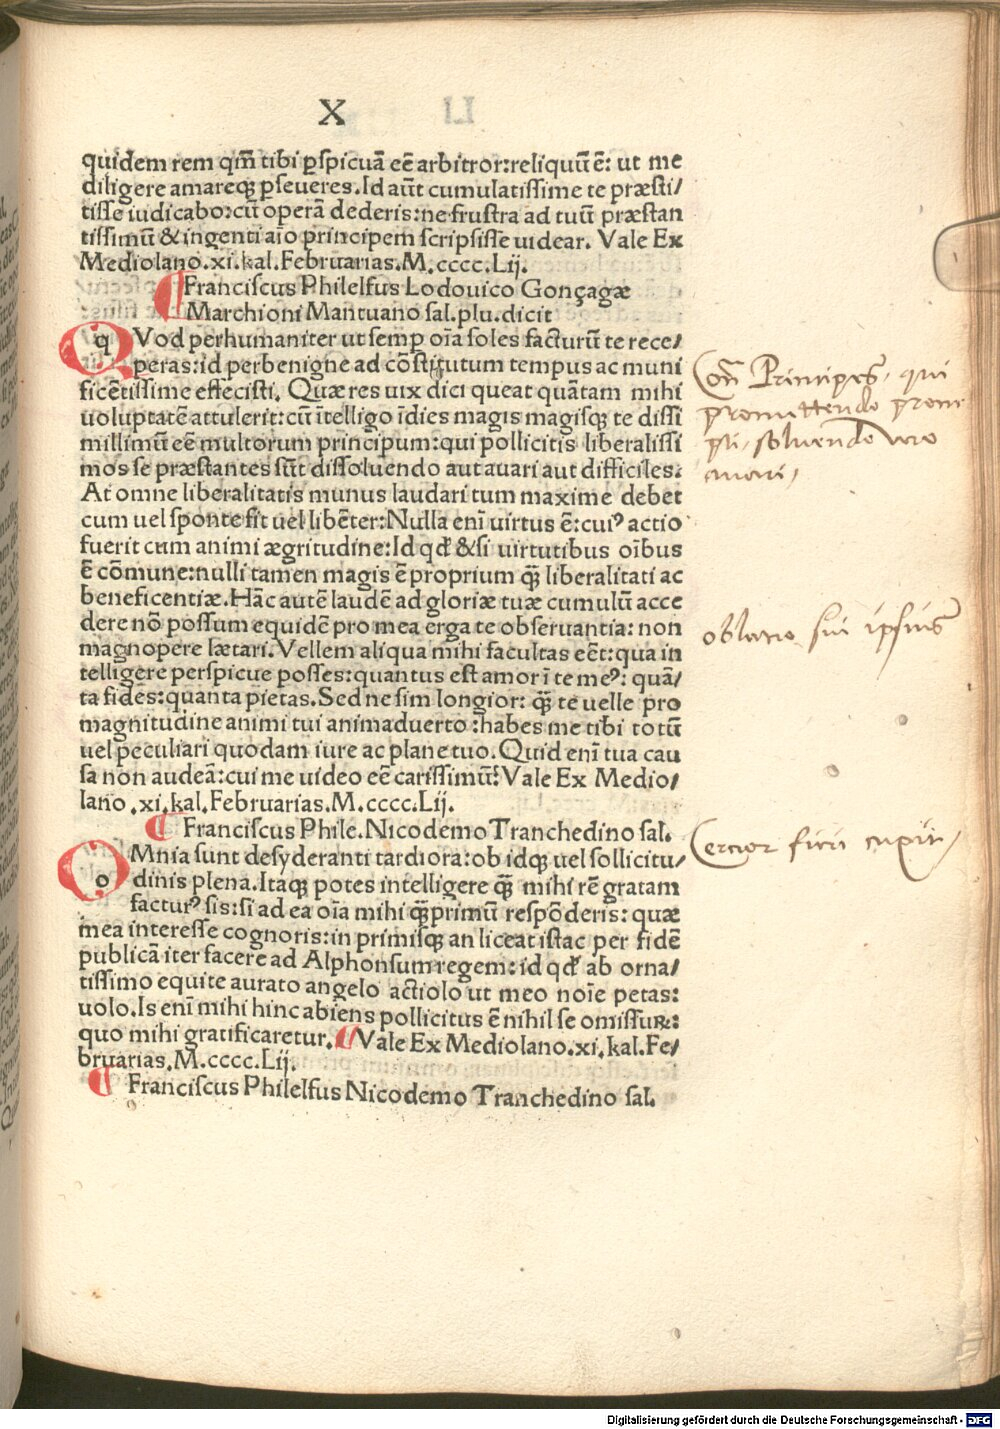 X
quidem rem qm̄ tibi ꝑspicuā eē arbitror:reliquū ē: ut me
diligere amareqꝫ ꝑseueres.Id aūt cumulatissime te præsti/
tisse iudicabo:cū operā dederis:ne frustra ad tuū præstan
tissimū & ingenti aīo principem scripsisse uidear. Vale Ex
Mediolano.xi.kal.Februarias.M.cccc.Lij.
Franciscus Philelfus Lodouico Gonçagæ
Marchioni Mantuano sal.plu.dicit
QVod perhumaniter ut semꝑ oīa soles facturū te rece/
peras:id perbenigne ad cōstitutum tempus ac muni
ficētissime effecisti. Quæ res uix dici queat quātam mihi
uoluptatē attulerit:cū ītelligo īdies magis magisqꝫ te dissi
millimū eē multorum principum:qui pollicitis liberalissi
mos se præstantes sūt dissoluendo aut auari aut difficiles:
At omne liberalitatis munus laudari tum maxime debet
cum uel sponte fit uel libēter:Nulla enī uirtus ē:cuiꝰ actio
fuerit cum animi ægritudine:Id qd̄ & si uirtutibus oībus
ē cōmune:nulli tamen magis ē proprium qꝫ̄ liberalitati ac
beneficentiæ.Hāc autē laudē ad gloriæ tuæ cumulū acce
dere nō possum equidē pro mea erga te obseruantia: non
magnopere lætari.Vellem aliqua mihi facultas eēt:qua in
telligere perspicue posses:quantus est amor ī te meꝰ: quā/
ta fides:quanta pietas.Sed ne sim longior: qꝫ̄ te uelle pro
magnitudine animi tui animaduerto :habes me tibi totū
uel peculiari quodam iure ac plane tuo.Quid enī tua cau
sa non audeā:cui me uideo eē carissimū?Vale Ex Medio/
lano .xi.kal.Februarias.M.cccc.Lij.
Franciscus Phile.Nicodemo Tranchedino sal.
OMnia sunt desyderanti tardiora:ob idqꝫ uel sollicitu/
dinis plena.Itaqꝫ potes intelligere qꝫ̄ mihi rē gratam
facturꝰ sis:si ad ea oīa mihi qꝫ̄primū respōderis: quæ
mea interesse cognoris:in primisqꝫ an liceat istac per fidē
publicā iter facere ad Alphonsum regem:id qd̄ ab orna/
tissimo equite aurato angelo actiolo ut meo noīe petas:
uolo.Is enī mihi hinc abiens pollicitus ē nihil se omissuꝝ:
quo mihi gratificaretur. Vale Ex Mediolano.xi.kal.Fe/
bruarias.M.cccc.Lij.
Franciscus Philelfus Nicodemo Tranchedino sal.
Principes, qui
promittendo prom
pti, soluendo vero
auari,
oblatio sui ipsius
Certior fieri cupit,
Digitalisierung gefördert durch die Deutsche Forschungsgemeinschaft - DFG